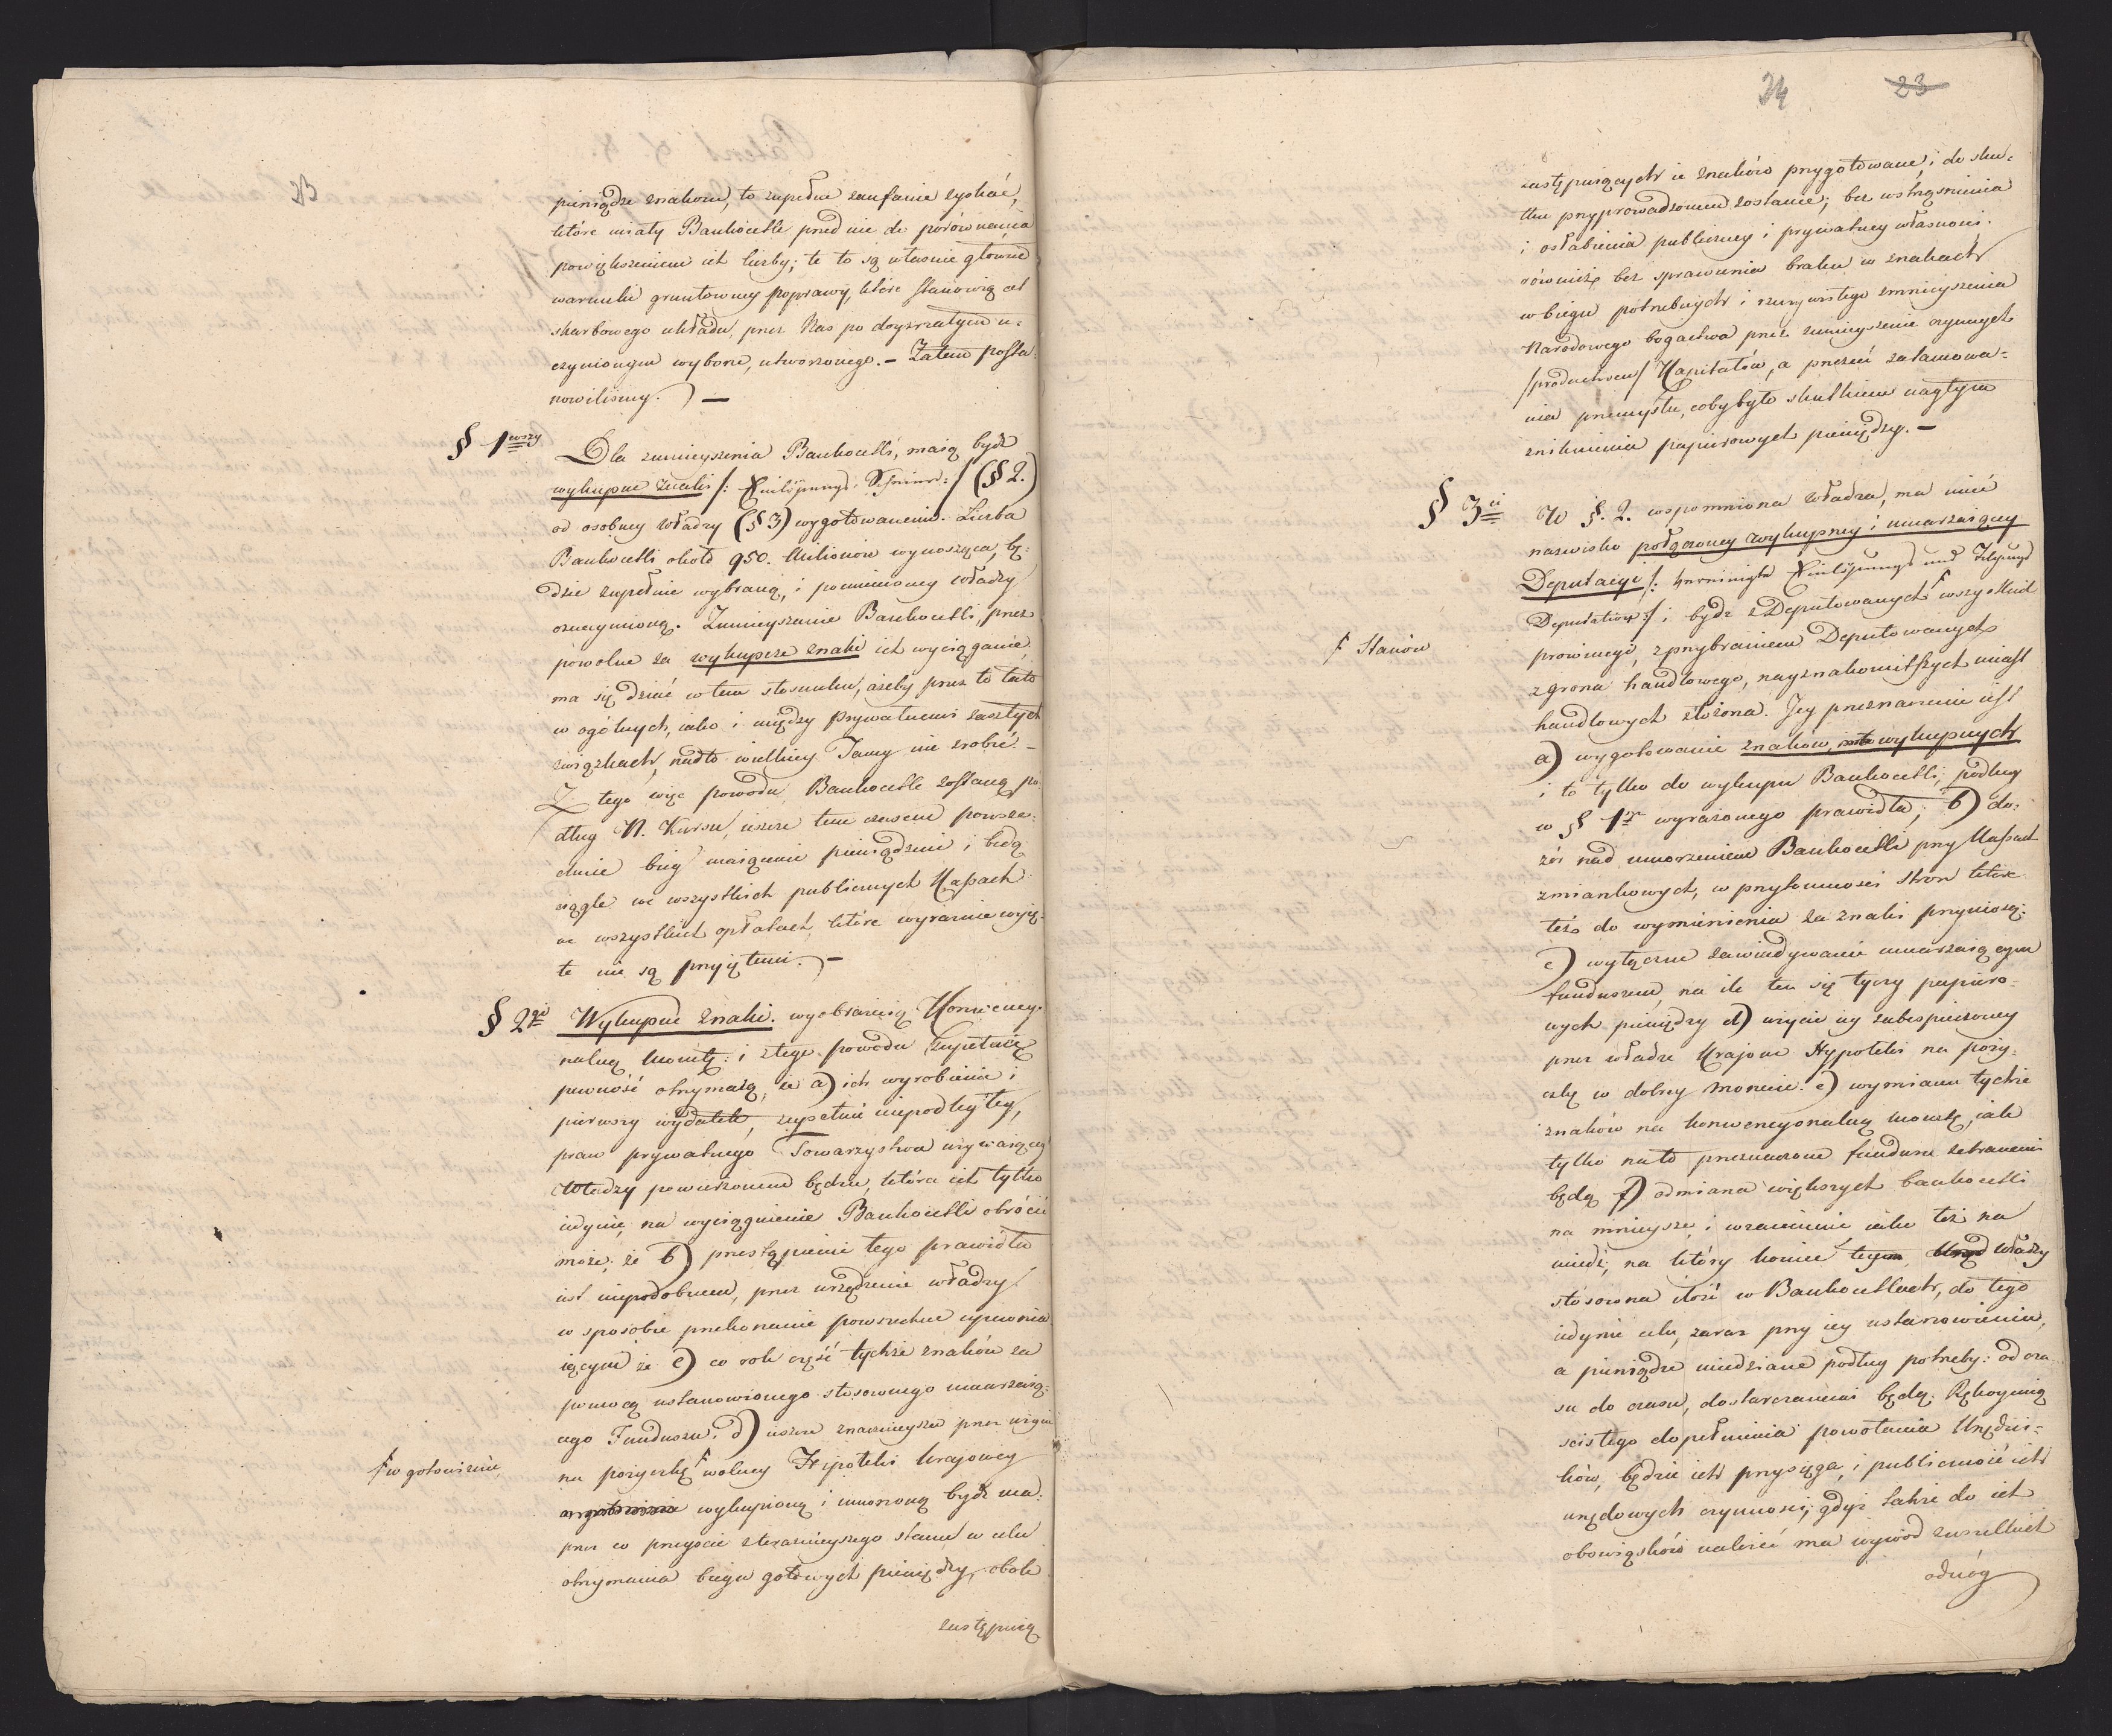 23
pieniądze znakom, to zupełne zaufanie zyskać,
które miały Bankocetle przed nie do porównania
powiększeniem ich liczby; te to są właśnie główne
warunki gruntowney poprawy, które stanowią cel
skarbowego układu, przez Nas po doyrzałym u-
czynionym wyborze, utworzonego. – Zatem posta-
nowiliśmy. –
§ 1wszy
Dla zmnieyszenia Bankocetli, maią bydź
wykupne znaki /: Einlösungs-Scheine :/ (§ 2.)
od osobney władzy (§ 3) wygotowanemi. Liczba
Bankocetli około 950. Milionów wynosząca, bę-
dzie zupełnie wybraną, i pomienioney władzy
Zmnieyszanie Bankocetli, przez
powolne za wykupcze znaki ich wyciąganie,
ma się dziać w tem stosunku, ażeby przez to tak
w ogólnych, iako i między prywatnemi zaszłych
związkach, nadto wielkiey Tamy nie zrobić. –
Z tego więc powodu, Bankocetle zostaną po-
dług N. Kursu, ieszcze tem czasem powsze-
chnie bieg maiącemi pieniądzmi i będą
ciągle we wszystkich publicznych Kassach
we wszystkich opłatach, które wyraźnie wyię-
te nie są przyiętemi. –
§ 2gi
Wykupne znaki. wyobrażaią Konwency-
nalną monetę: i z tego powodu zupełną
pewność otrzymaią, że a) ich wyrobienie i
pierwszy wydatek, zupełnie niepodległey,
praw prywatnego Towarzystwa używaiącey
Władzy powierzonem będzie, która ich tylko
iedynie na wyciągnienie Bankocetli obrócić
może; że b) przestąpienie tego prawidła
iest niepodobnem, przez urządzenie władzy
w sposobie przekonanie powszechne upewnia-
iącym że c) co rok część tychże znaków za
pomocą ustanowionego stosownego umarzaią-
cego Funduszu, d) ieszcze znacznieysza przez użycie
na pożyczkę wolney Hipoteki kraiowey
w gotowiznie
wykupioną i umorzoną bydź ma:
przez co przeyście z terazniejszego stanu w celu
otrzymania biegu gotowych pieniędzy, obok
zastępuią
24 23
zastępuiących ie znaków przygotowane, i do sku-
tku przyprowadzonem zostanie; bez wstrząśnienia
i osłabienia publiczney i prywatney własności.
również bez sprawienia braku w znakach
w biegu potrzebnych i rzeczywistego zmnieyszenia
Narodowego bogactwa przez zmnieyszenie czynnych
Kapitałów, a przecież zatamowa-
nia przemysłu, coby było skutkiem nagłym
zniknienia papierowych pieniędzy. –
§ 3ci
W §. 2. wspomniona władza, ma mieć
nazwisko połączoney wykupney i umarzaiącey
Deputacyi /: Vereinigte Einlösungs und Tilgungs
Deputation :/ i bydź z Deputowanych wszystkich
Stanów
prowincyi, z przybraniem Deputowanych
z grona handlowego, nayznakomitszych miast
handlowych złożona. Jey przeznaczenie iest
a) wygotowanie znaków wykupnych
i to tylko do wykupu Bankocetli, podług
w § 1ym wyrażonego prawidła; b) do-
zór nad umorzeniem Bankocetli przy Kassach
zmiankowych, w przytomności stron które
też do wymienienia za znaki przyniosą;
c) wyłączne zawiadywanie umarzaiącym
funduszem, na ile ten się tyczy papiero-
wych pieniędzy d) użycie iey zabespieczoney
przez władze Kraiowe Hypoteki na poży-
czkę w dobrey monecie. e) wymiana tychże
znaków na konwencyonalną monetę, iak
tylko na to przeznaczone fundusze zebranemi
będą f) odmiana większych bankocetli
na mnieysze, i wzaiemnie iako też na
miedź; na który koniec władzy
stosowna ilość w Bankocetlach, do tego
iedynie celu, zaraz przy iey ustanowieniu,
a pieniądze miedziane podług potrzeby: od cza-
su do czasu, dostarczanemi będą. Rękoymią
ścisłego dopełnienia powołania Urzędni-
ków, będzie ich przysięga, i publiczność ich
urzędowych czynności; gdyż także do ich
obowiązków należeć ma wywód wszelkich
odnóg